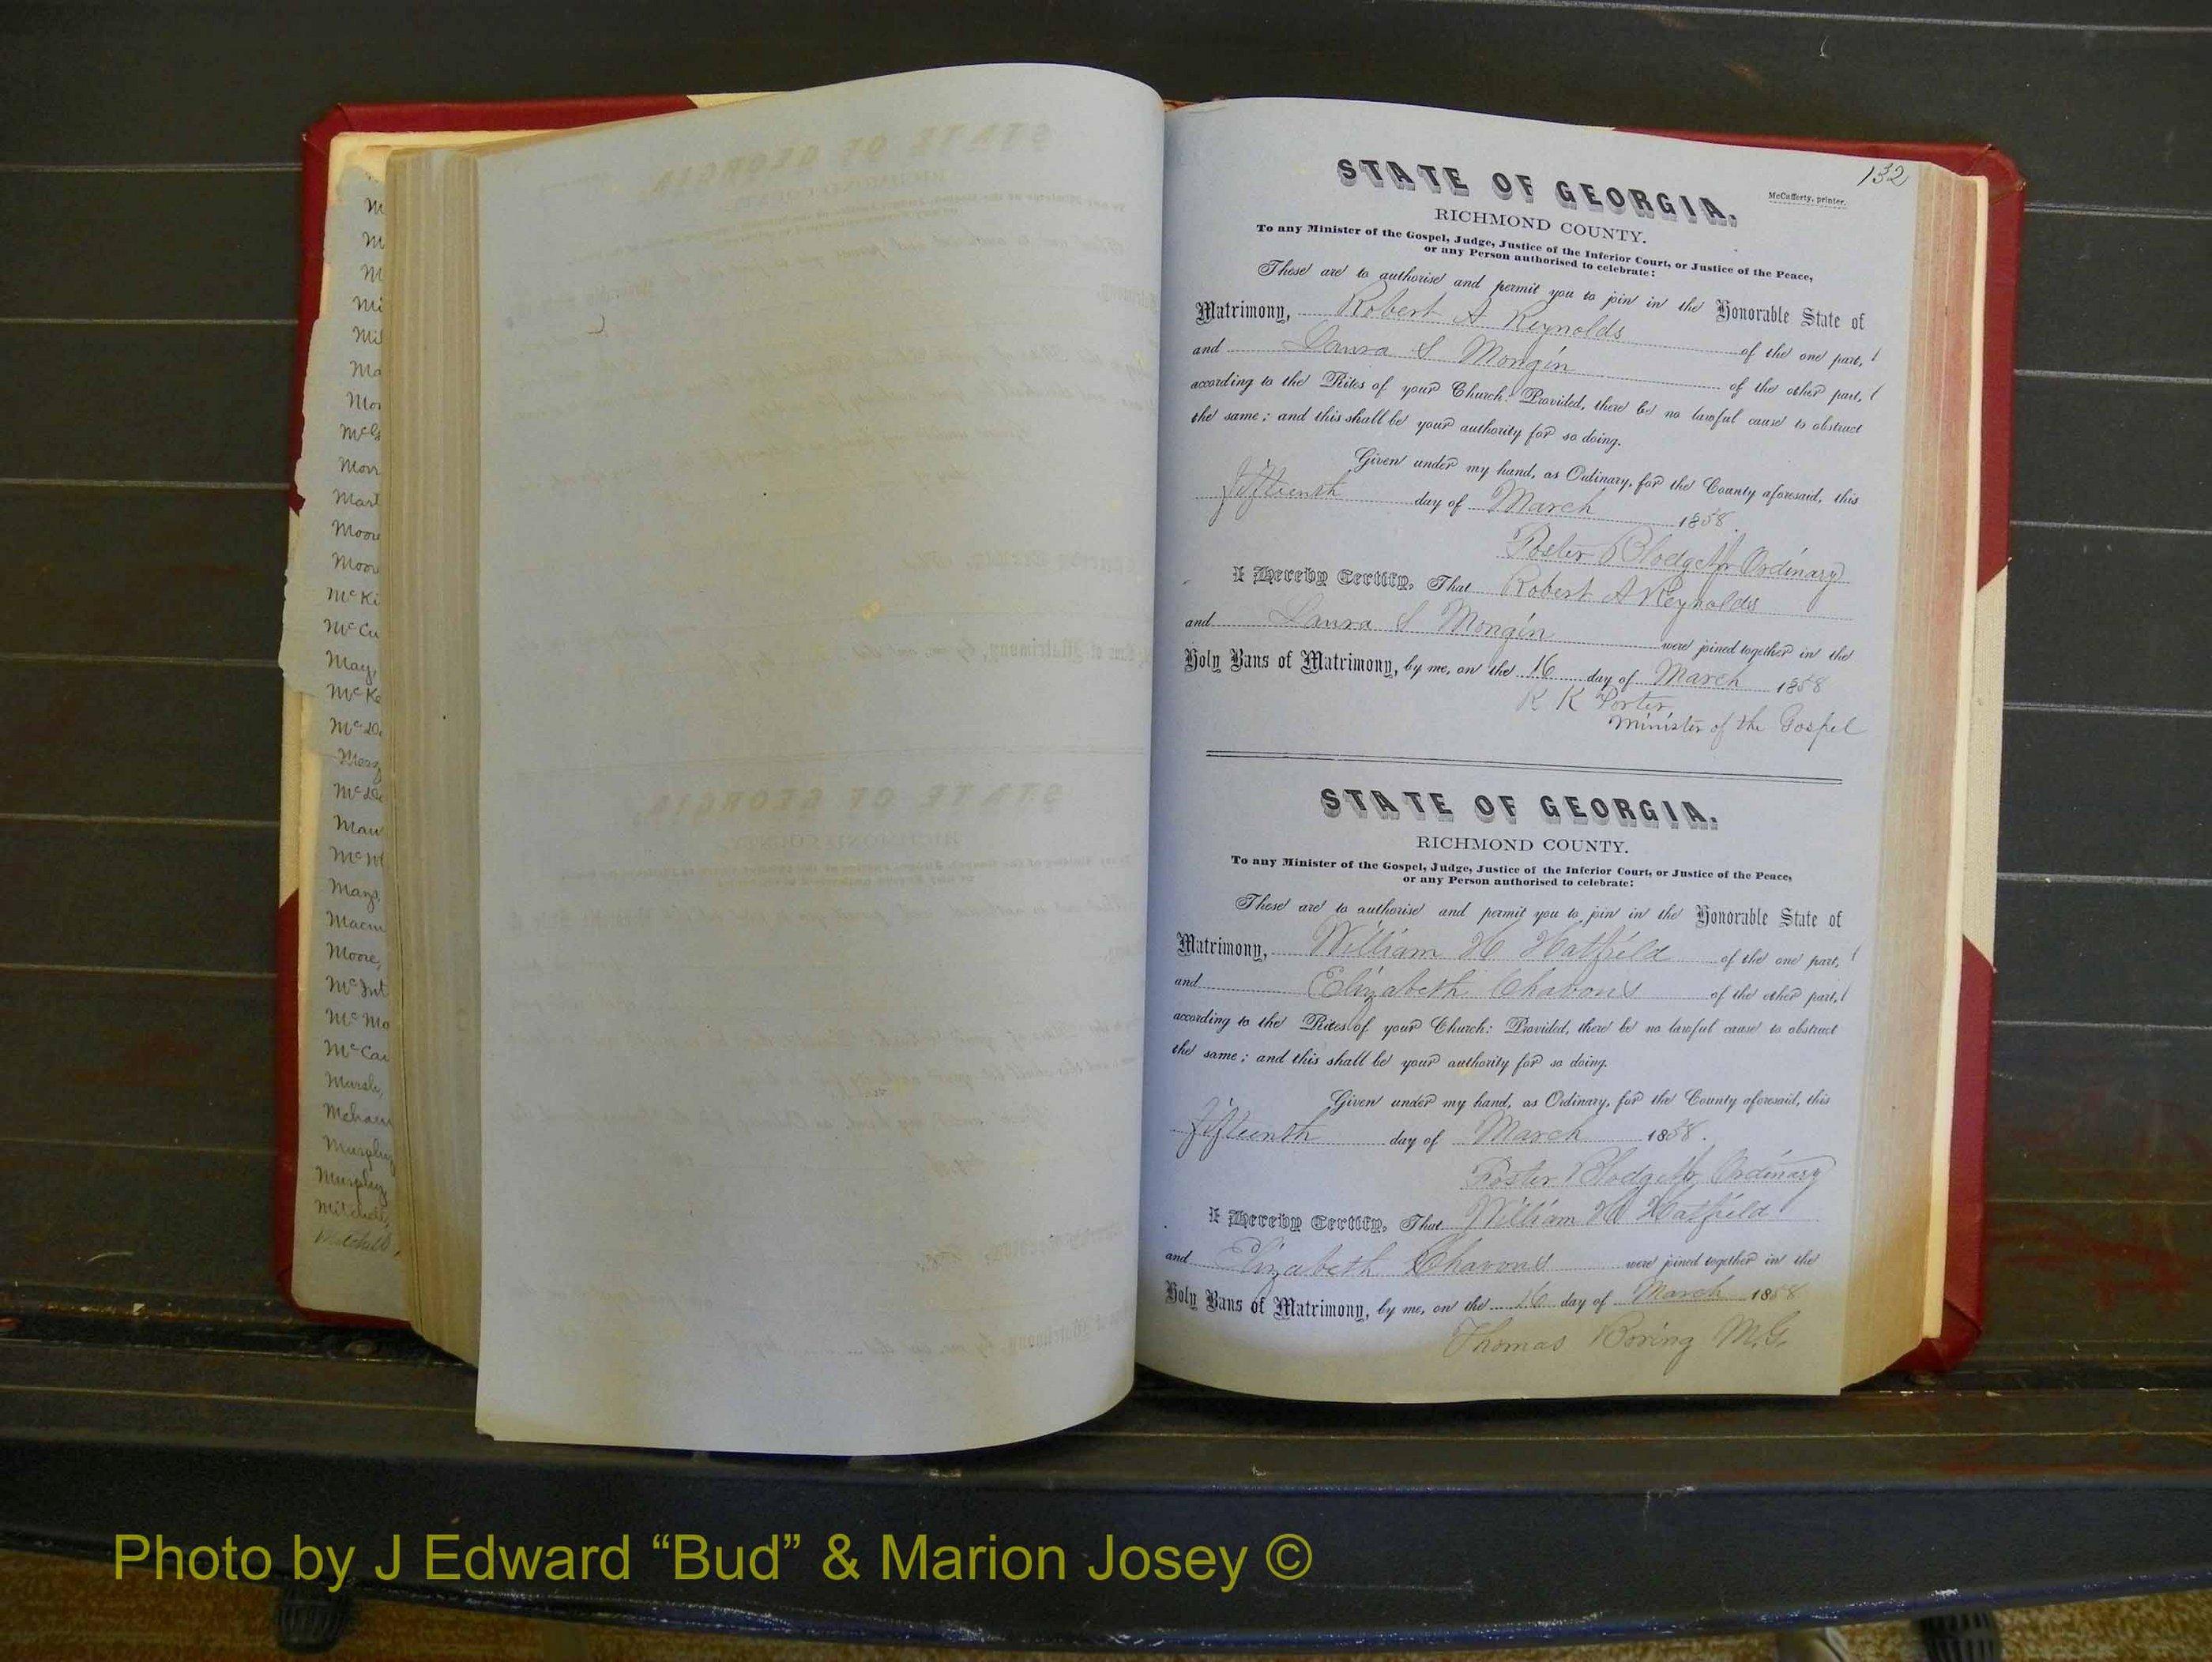 M
M
M
Mi
Mil
Ma
Mor
McG
Morr
Mart
Moor
Moor
McKi
McCu
May,
McKe
McDe
McDe
Mau
Mays,
Macm
Moore,
McInt
McMo
McCar
Marsh,
Murphy
Murphy
Mitchell,
Mitchell,
132
STATE OF GEORGIA,
McCafferty, printer.
RICHMOND COUNTY.
To any Minister of the Gospel, Judge, Justice of the Inferior Court, or Justice of the Peace,
or any Person authorised to celebrate:
These are to authorise and permit you to join in the Honorable State of
Matrimony, Robert A Reynolds of the one part,
and Laura S Mongin of the other part,
according to the Rites of your Church: Provided, there be no lawful cause to obstruct
the same; and this shall be your authority for so doing.
Given under my hand, as Ordinary, for the County aforesaid, this
fifteenth day of March 1858.
Foster Blodget Jr Ordinary
I Hereby Certify, That Robert A Reynolds
and Laura S Mongin were joined together in the
Holy Bans of Matrimony, by me, on the 16 day of March 1858
R K Porter
Minister of the Gospel
STATE OF GEORGIA,
RICHMOND COUNTY.
To any Minister of the Gospel, Judge, Justice of the Inferior Court, or Justice of the Peace,
or any Person authorised to celebrate:
These are to authorise and permit you to join in the Honorable State of
Matrimony, William H Hatfield of the one part,
and Elizabeth Chavous of the other part,
according to the Rites of your Church: Provided, there be no lawful cause to obstruct
the same; and this shall be your authority for so doing.
Given under my hand, as Ordinary, for the County aforesaid, this
fifteenth day of March 1858.
Foster Blodget Jr Ordinary
I Hereby Certify, That William H Hatfield
and Elizabeth Chavous were joined together in the
Holy Bans of Matrimony, by me, on the 16 day of March 1858
Thomas Boring M.G.
Photo by J Edward “Bud” & Marion Josey ©